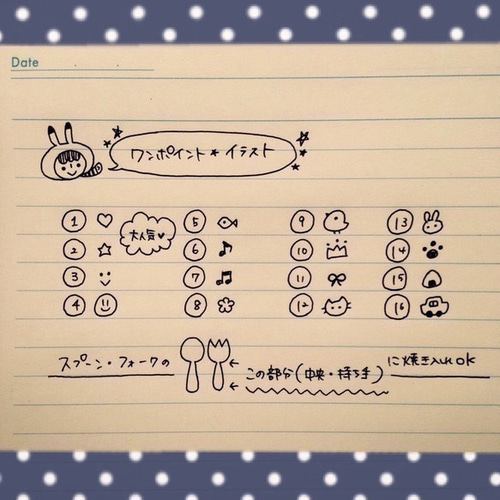 Date
ワンポイント★イラスト
大人気♥
① ⑤ ⑨ ⑬
② ⑥ ⑩ ⑭
③ ⑦ ⑪ ⑮
④ ⑧ ⑫ ⑯
スプーン・フォークの ← この部分(中央・持ち手) に焼き入れOK